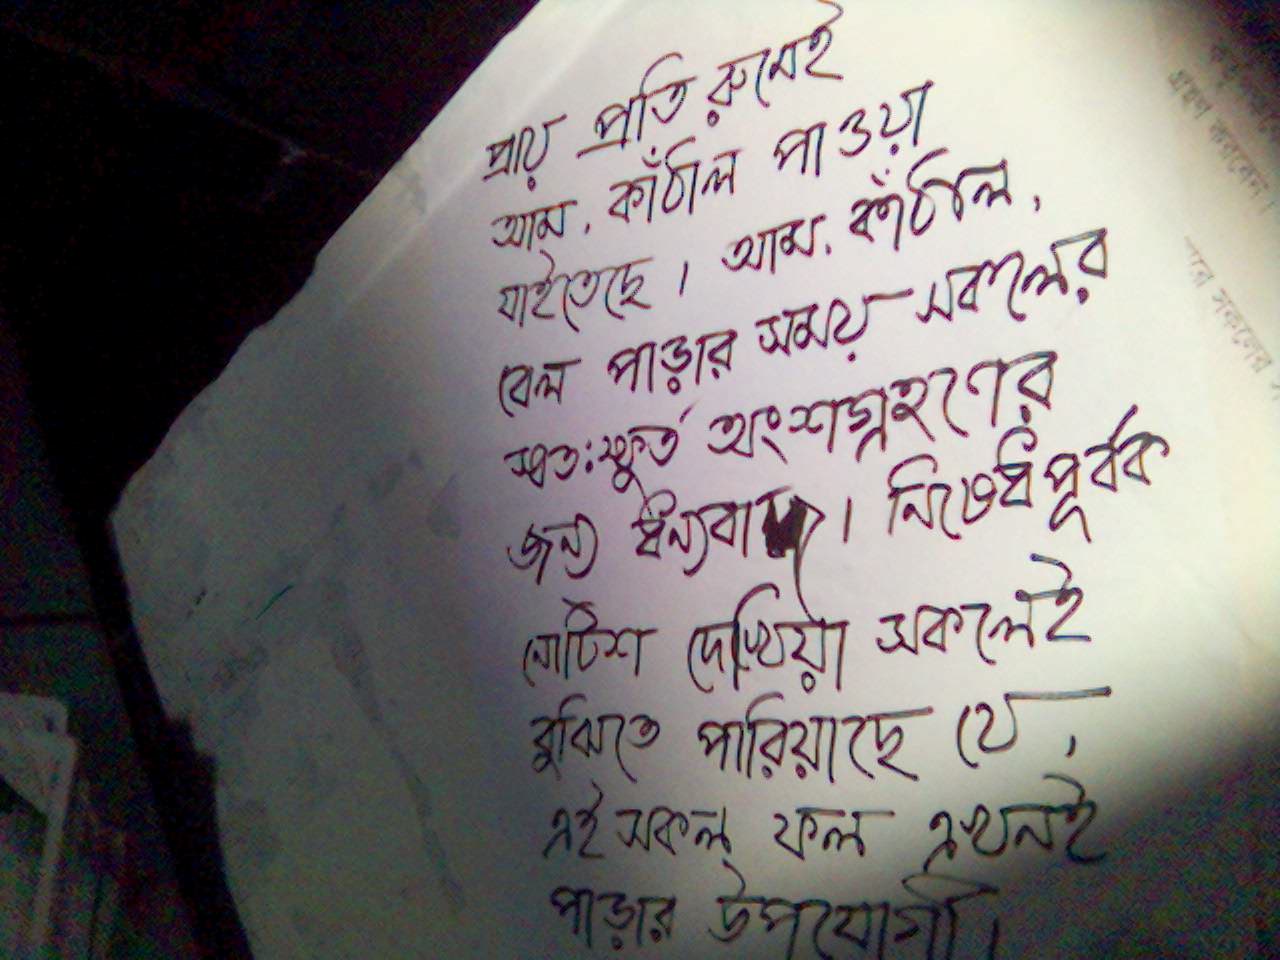 প্রায় প্রতি রুমেই
আম, কাঁঠাল পাওয়া
যাইতেছে। আম, কাঁঠাল,
বেল পাড়ার সময় সকলের
স্বতঃস্ফুর্ত অংশগ্রহণের
জন্য ধন্যবাদ। নিষেধপূর্বক
নোটিশ দেখিয়া সকলেই
বুঝিতে পারিয়াছে যে,
এই সকল ফল এখনই
পাড়ার উপযোগী।
গ্রহণ করবেন।
সকলের